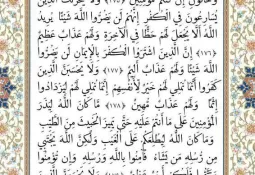 وَخَافُونِ إِن كُنتُم مُّؤْمِنِينَ ﴿١٧٥﴾ وَلَا يَحْزُنكَ الَّذِينَ
يُسَارِعُونَ فِي الْكُفْرِ إِنَّهُمْ لَن يَضُرُّوا اللَّهَ شَيْئًا يُرِيدُ
اللَّهُ أَلَّا يَجْعَلَ لَهُمْ حَظًّا فِي الْآخِرَةِ وَلَهُمْ عَذَابٌ عَظِيمٌ
﴿١٧٦﴾ إِنَّ الَّذِينَ اشْتَرَوُا الْكُفْرَ بِالْإِيمَانِ لَن يَضُرُّوا
اللَّهَ شَيْئًا وَلَهُمْ عَذَابٌ أَلِيمٌ ﴿١٧٧﴾ وَلَا يَحْسَبَنَّ الَّذِينَ
كَفَرُوا أَنَّمَا نُمْلِي لَهُمْ خَيْرٌ لِّأَنفُسِهِمْ إِنَّمَا نُمْلِي لَهُمْ لِيَزْدَادُوا
إِثْمًا وَلَهُمْ عَذَابٌ مُّهِينٌ ﴿١٧٨﴾ مَّا كَانَ اللَّهُ لِيَذَرَ
الْمُؤْمِنِينَ عَلَىٰ مَا أَنتُمْ عَلَيْهِ حَتَّىٰ يَمِيزَ الْخَبِيثَ مِنَ الطَّيِّبِ
وَمَا كَانَ اللَّهُ لِيُطْلِعَكُمْ عَلَى الْغَيْبِ وَلَٰكِنَّ اللَّهَ يَجْتَبِي
مِن رُّسُلِهِ مَن يَشَاءُ فَآمِنُوا بِاللَّهِ وَرُسُلِهِ وَإِن تُؤْمِنُوا